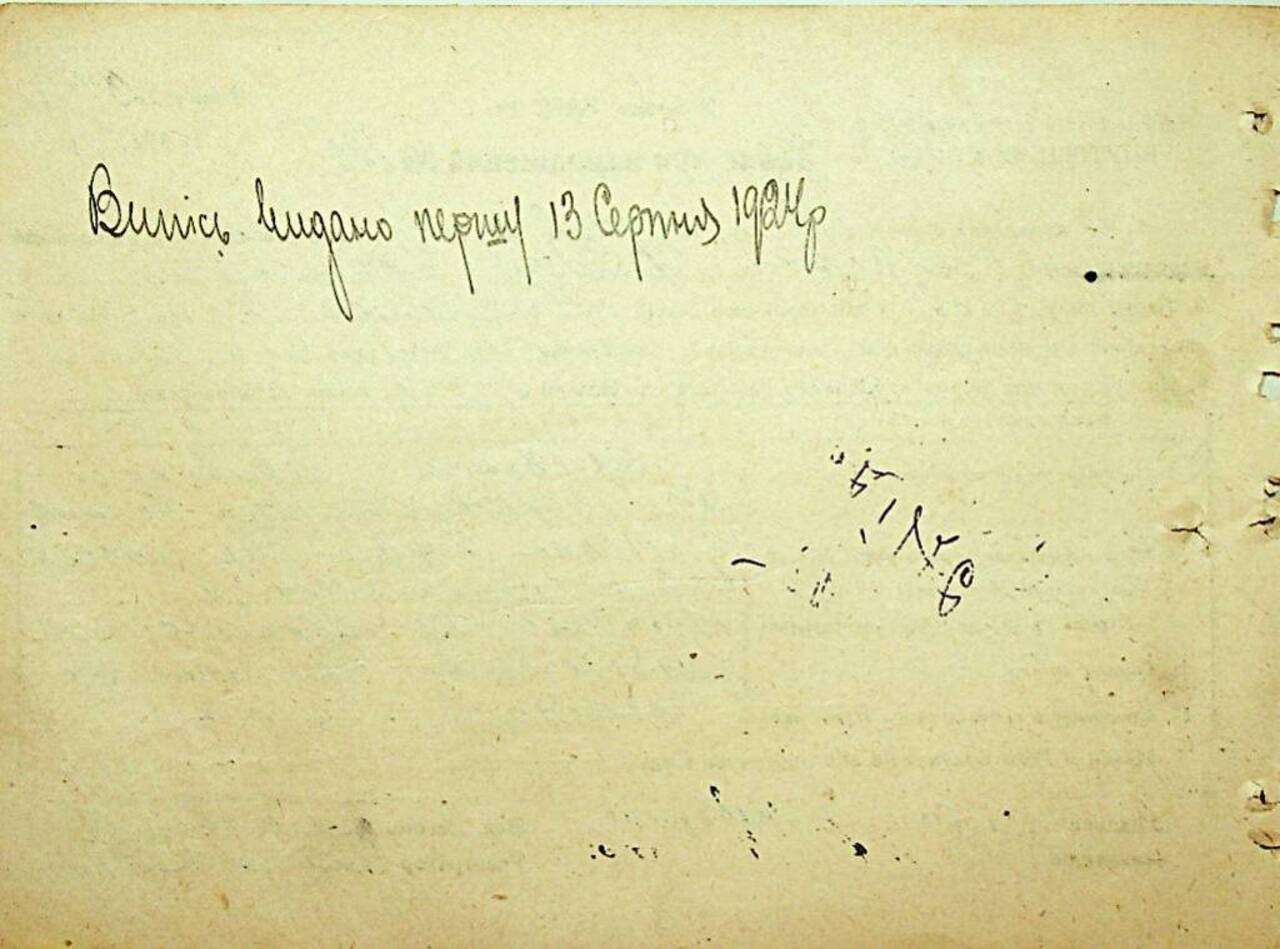 Випісь видано першу 13 Серпня 1924р